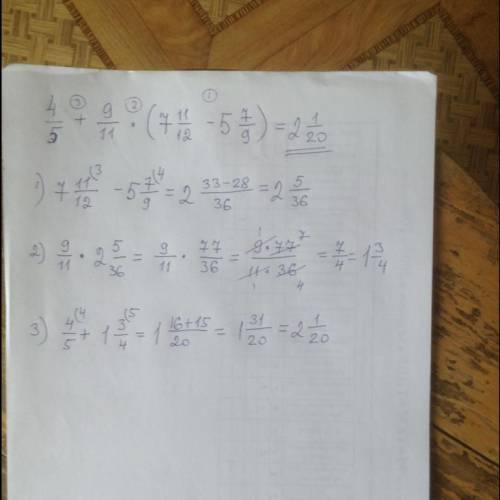 4/5 +③ 9/11 ·② (7 11/12 -① 5 7/9) = 2 1/20
1) 7 11/12 (3 - 5 7/9 (4 = 2 33-28/36 = 2 5/36
2) 9/11 · 2 5/36 = 9/11 · 77/36 = 9·77/11·36 = 7/4 = 1 3/4
3) 4/5 (4 + 1 3/4 (5 = 1 16+15/20 = 1 31/20 = 2 1/20